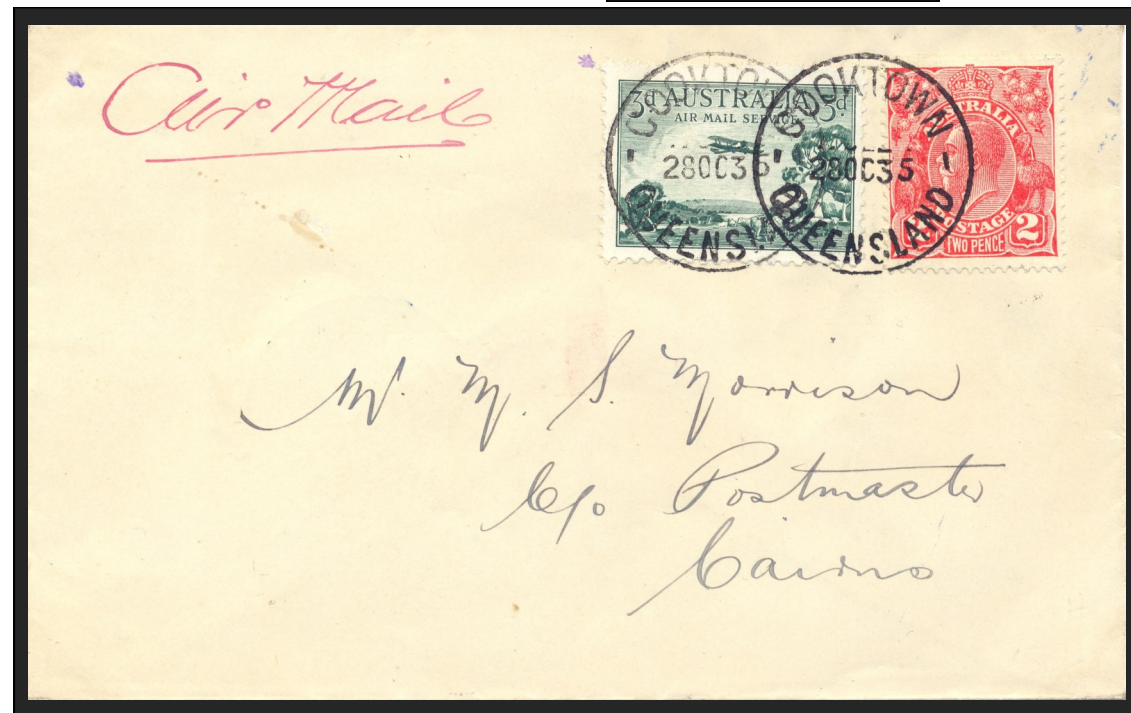 Air Mail
3d AUSTRALIA 3d
AIR MAIL SERVICE
COOKTOWN
28OC35
QUEENSLAND
COOKTOWN
28OC35
QUEENSLAND
AUSTRALIA
POSTAGE
2
TWO PENCE
Mr. M. S. Morrison
C/o Postmaster
Cairns